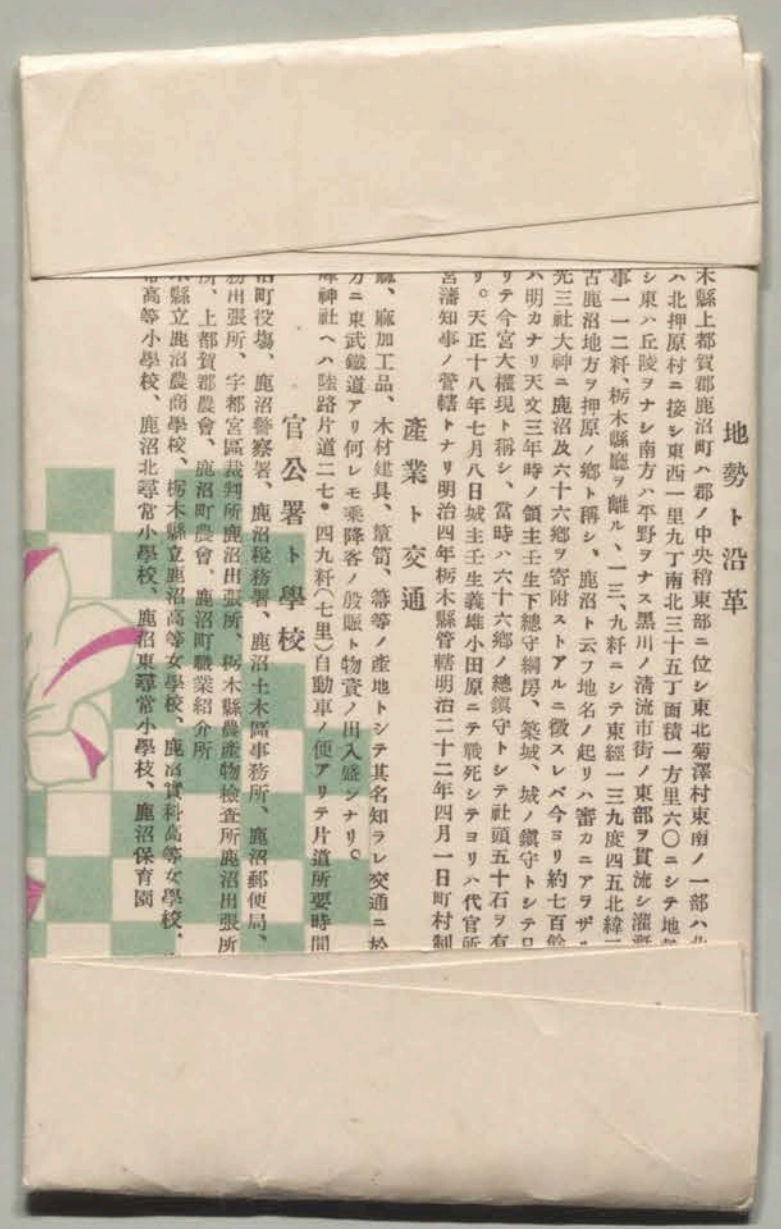 地勢ト沿革
木縣上都賀郡鹿沼町ハ郡ノ中央稍東部ニ位シ東北菊澤村東南ノ一部ハ北
ハ北押原村ニ接シ東西一里九丁南北三十五丁面積一方里六〇ニシテ地勢
シ東ハ丘陵ヲナシ南方ハ平野ヲナス黒川ノ清流市街ノ東部ヲ貫流シ灌漑
事一一二粁、栃木縣廳ヲ離ル、一三、九粁ニシテ東經一三九度四五北緯三
古鹿沼地方ヲ押原ノ鄕ト稱シ、鹿沼ト云フ地名ノ起リハ審カニアラザル
光三社大神ニ鹿沼及六十六鄕ヲ寄附ストアルニ徴スレバ今ヨリ約七百餘
ハ明カナリ天文三年時ノ領主壬生下總守綱房、築城、城ノ鎭守トシテ日
リテ今宮大權現ト稱シ、當時ハ六十六鄕ノ總鎭守トシテ社頭五十石ヲ有
リ。天正十八年七月八日城主壬生義雄小田原ニテ戰死シテヨリハ代官所
宮藩知事ノ管轄トナリ明治四年栃木縣管轄明治二十二年四月一日町村制
產業ト交通
麻、麻加工品、木材建具、簞笥、箒等ノ產地トシテ其名知ラレ交通ニ於
方ニ東武鐵道アリ何レモ乘降客ノ殷賑ト物資ノ出入盛ンナリ。
峰神社ヘハ陸路片道二七・四九粁(七里)自動車ノ便アリテ片道所要時間
官公署ト學校
沼町役場、鹿沼警察署、鹿沼稅務署、鹿沼土木區事務所、鹿沼郵便局、
務出張所、宇都宮區裁判所鹿沼出張所、栃木縣農產物檢査所鹿沼出張所
所、上都賀郡農會、鹿沼町農會、鹿沼町職業紹介所
木縣立鹿沼農商學校、栃木縣立鹿沼高等女學校、鹿沼實科高等女學校、
常高等小學校、鹿沼北尋常小學校、鹿沼東尋常小學校、鹿沼保育園